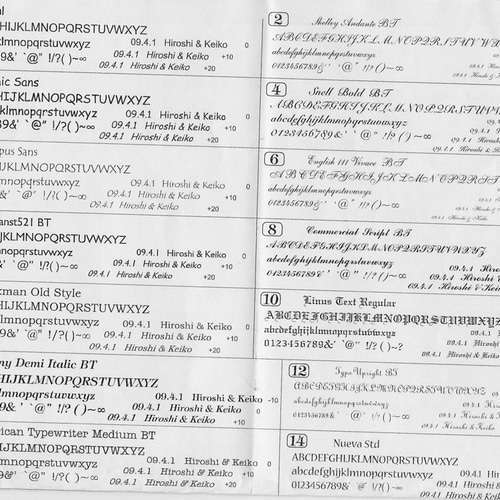 HIJKLMNOPQRSTUVWXYZ
09.4.1 Hiroshi & Keiko 0
09.4.1 Hiroshi & Keiko +20
ic Sans
HIJKLMNOPQRSTUVWXYZ
klmnopqrstuvwxyz 09.4.1 Hiroshi & Keiko 0
09.4.1 Hiroshi & Keiko +10
09.4.1 Hiroshi & Keiko +20
pus Sans
HIJKLMNOPQRSTUVWXYZ
lmnopqrstuvwxyz 09.4.1 Hiroshi & Keiko 0
9& ' `@" !/?( )~∞ 09.4.1 Hiroshi & Keiko +10
09.4.1 Hiroshi & Keiko +20
anst521 BT
IJKLMNOPQRSTUVWXYZ
lmnopqrstuvwxyz 09.4.1 Hiroshi & Keiko 0
9& ' `@" !/?( )~∞ 09.4.1 Hiroshi & Keiko +10
09.4.1 Hiroshi & Keiko +20
kman Old Style
HIJKLMNOPQRSTUVWXYZ
klmnopqrstuvwxyz 09.4.1 Hiroshi & Keiko 0
9& ' `@" !/?( )~∞ 09.4.1 Hiroshi & Keiko +10
09.4.1 Hiroshi & Keiko +20
ny Demi Italic BT
HIJKLMNOPQRSTUVWXYZ
klmnopqrstuvwxyz 09.4.1 Hiroshi & Keiko 0
9& ' `@" !/? ( )~∞ 09.4.1 Hiroshi & Keiko +10
09.4.1 Hiroshi & Keiko +20
ican Typewriter Medium BT
HIJKLMNOPQRSTUVWXYZ
lmnopqrstuvwxyz 09.4.1 Hiroshi & Keiko 0
09.4.1 Hiroshi & Keiko +10
09.4.1 Hiroshi & Keiko +20
2 Shelley Andante BT
ABCDEFGHIJKLMNOPQRSTUVW
abcdefghijklmnopqrstuvwxyz
0123456789&' `@" !/? ( )~∞
4 Snell Bold BT
ABCDEFGHIJKLMNOPQRSTUV
abcdefghijklmnopqrstuvwxyz
0123456789&' `@" !/? ( )~∞
6 English 111 Vivace BT
ABCDEFGHIJKLMNOPQRST
abcdefghijklmnopqrstuvwxyz
0123456789&' `@" !/? ( )~∞
8 Commercial Script BT
ABCDEFGHIJKLMNOPQRSTUVWXY
abcdefghijklmnopqrstuvwxyz 09.4.1 Hiro
0123456789&' `@" !/? ( )~∞ 09.4.1 Hiroshi
09.4.1 Hiroshi & Kei
10 Linus Text Regular
ABCDEFGHIJKLMNOPQRSTUVWXYZ
abcdefghijklmnopqrstuvwxyz 09.4.1 Hiros
0123456789&' `@" !/? ( )~? 09.4.1 Hiroshi
09.4.1 Hiroshi &
12 Typo Upright BT
ABCDEFGHIJKLMNOPQRSTUVWXYZ
abcdefghijklmnopqrstuvwxyz
0123456789&' `@" !/? ( )~∞
14 Nueva Std
ABCDEFGHIJKLMNOPQRSTUVWXYZ
abcdefghijklmnopqrstuvwxyz 09.4.1 Hiro
0123456789&' `@" !/? ( )~∞ 09.4.1 Hiroshi
09.4.1 Hiroshi & Kei